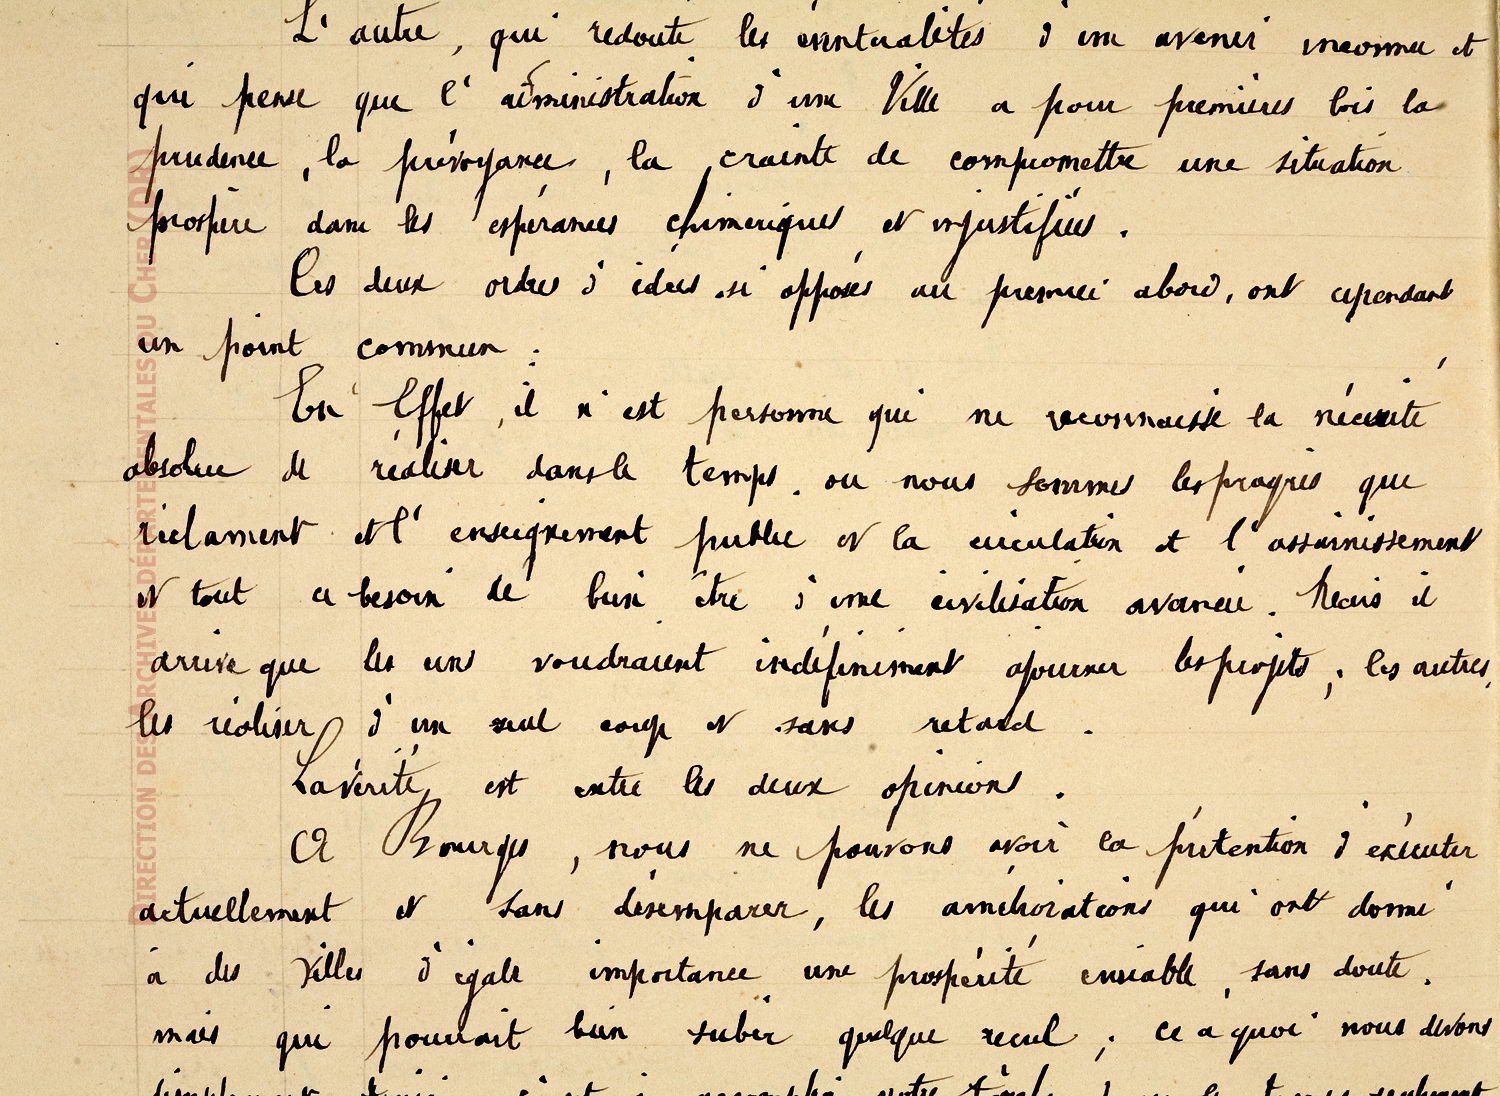 L'autre, qui redoute les éventualités d'un avenir inconnu et
qui pense que l'administration d'une Ville a pour premières lois la
prudence, la prévoyance, la crainte de compromettre une situation
prospère dans les espérances chimériques et injustifiées.
Ces deux ordres d'idées si opposés au premier abord, ont cependant
un point commun :
En Effet, il n'est personne qui ne reconnaisse la nécessité
absolue de réaliser dans le temps où nous sommes les progrès que
réclament et l'enseignement public et la circulation et l'assainissement
et tout ce besoin de bien être d'une civilisation avancée. Mais il
arrive que les uns voudraient indéfiniment ajourner les projets ; les autres,
les réaliser d'un seul coup et sans retard.
La vérité est entre les deux opinions.
A Bourges, nous ne pouvons avoir la prétention d'exécuter
actuellement et sans désemparer, les améliorations qui ont donné
à des Villes d'égale importance une prospérité enviable, sans doute,
mais qui pourrait bien subir quelque recul ; ce à quoi nous devons
DIRECTION DES ARCHIVES DÉPARTEMENTALES DU CHER (DR)